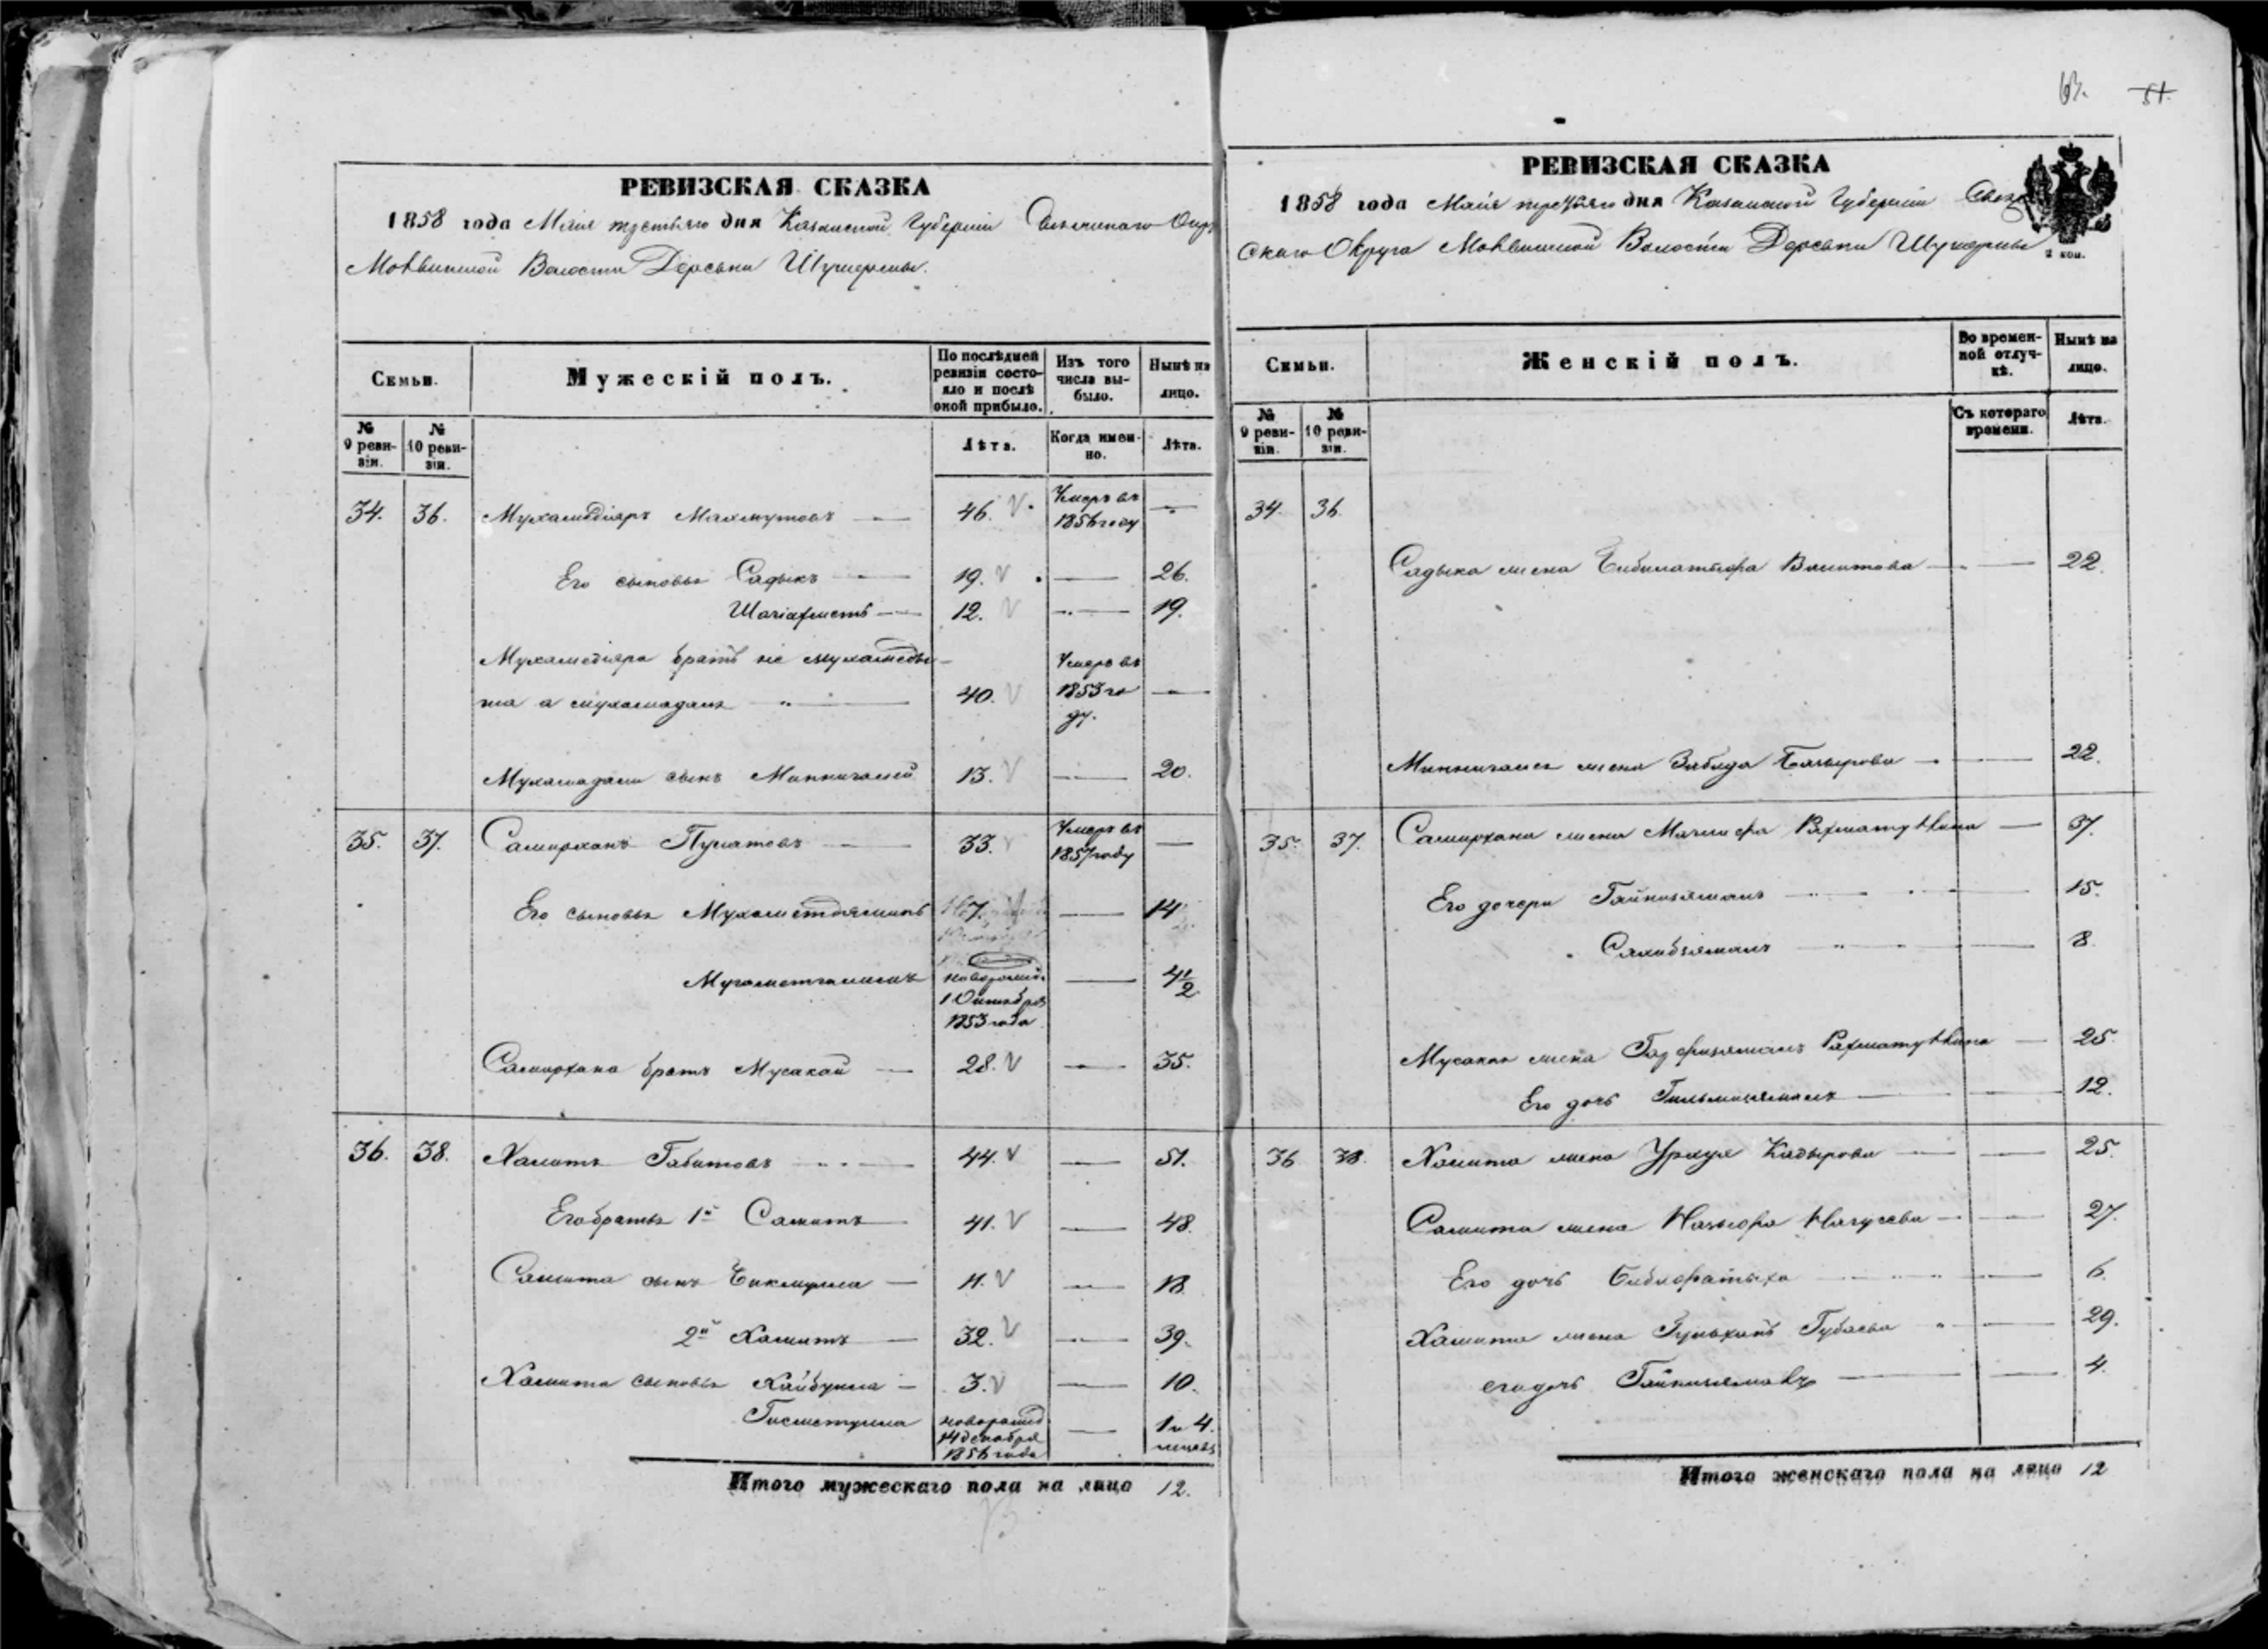 63. 51.
РЕВИЗСКАЯ СКАЗКА
1858 года Маія третьяго дня Казанской Губерніи
Волости Деревни
Семьи.
Мужескій полъ.
По послѣдней ревизіи состояло и послѣ оной прибыло.
Изъ того числа выбыло.
Нынѣ на лицо.
№ 9 ревизіи.
№ 10 ревизіи.
Лѣта.
Когда именно.
Лѣта.
34. 36. Мухамедіяръ Махмутовъ — 46. Умеръ въ 1856 году —
Его сыновья Садыкъ — 19. — 26.
Шагіахметъ — 12. — 19.
Мухамедіяра братъ не мухамедь-
ша а мухамадами — 40. Умеръ въ 1853 году. —
Мухамадами сынъ Миннигалей 13. — 20.
35. 37. Самирханъ — 33. Умеръ въ 1857 году —
Его сыновья Мухаметъяминъ 7. — 14
новорожд. 1 Октября 1853 года — 4 1/2
Самирхана братъ Мусакай — 28. — 35.
36. 38. Хамитъ Габитовъ — 44. — 51.
Его братья 1й Самитъ — 41. — 48.
Самита сынъ — 11. — 18.
2й Хамитъ — 32. — 39.
Хамита сыновья Хайбулла — 3. — 10.
новорожд. 14 декабря 1856 года — 1 и 4. месяц.
Итого мужескаго пола на лицо 12.
РЕВИЗСКАЯ СКАЗКА
1858 года Маія третьяго дня Казанской Губерніи
скаго Округа Волости Деревни
2 коп.
Семьи.
Женскій полъ.
Во временной отлучкѣ.
Нынѣ на лицо.
№ 9 ревизіи.
№ 10 ревизіи.
Съ котораго времени.
Лѣта.
34. 36.
Садыка жена Вагитова — — 22.
Миннигалея жена Забида Башырова — — 22.
35. 37. Самирхана жена Рахматуллина — 37.
Его дочери Гайнизямалъ — — 15.
Сахибзямалъ — — 8.
Мусакая жена Рахматуллина — 25.
Его дочь — — 12.
36 38. Хамита жена Уркуя Кадырова — — 25.
Самита жена — — 27.
Его дочь Бибифатыха — — 6.
Хамита жена Гульханъ Губаева — 29.
его дочь Гайнизямалъ — — 4.
Итого женскаго пола на лицо 12